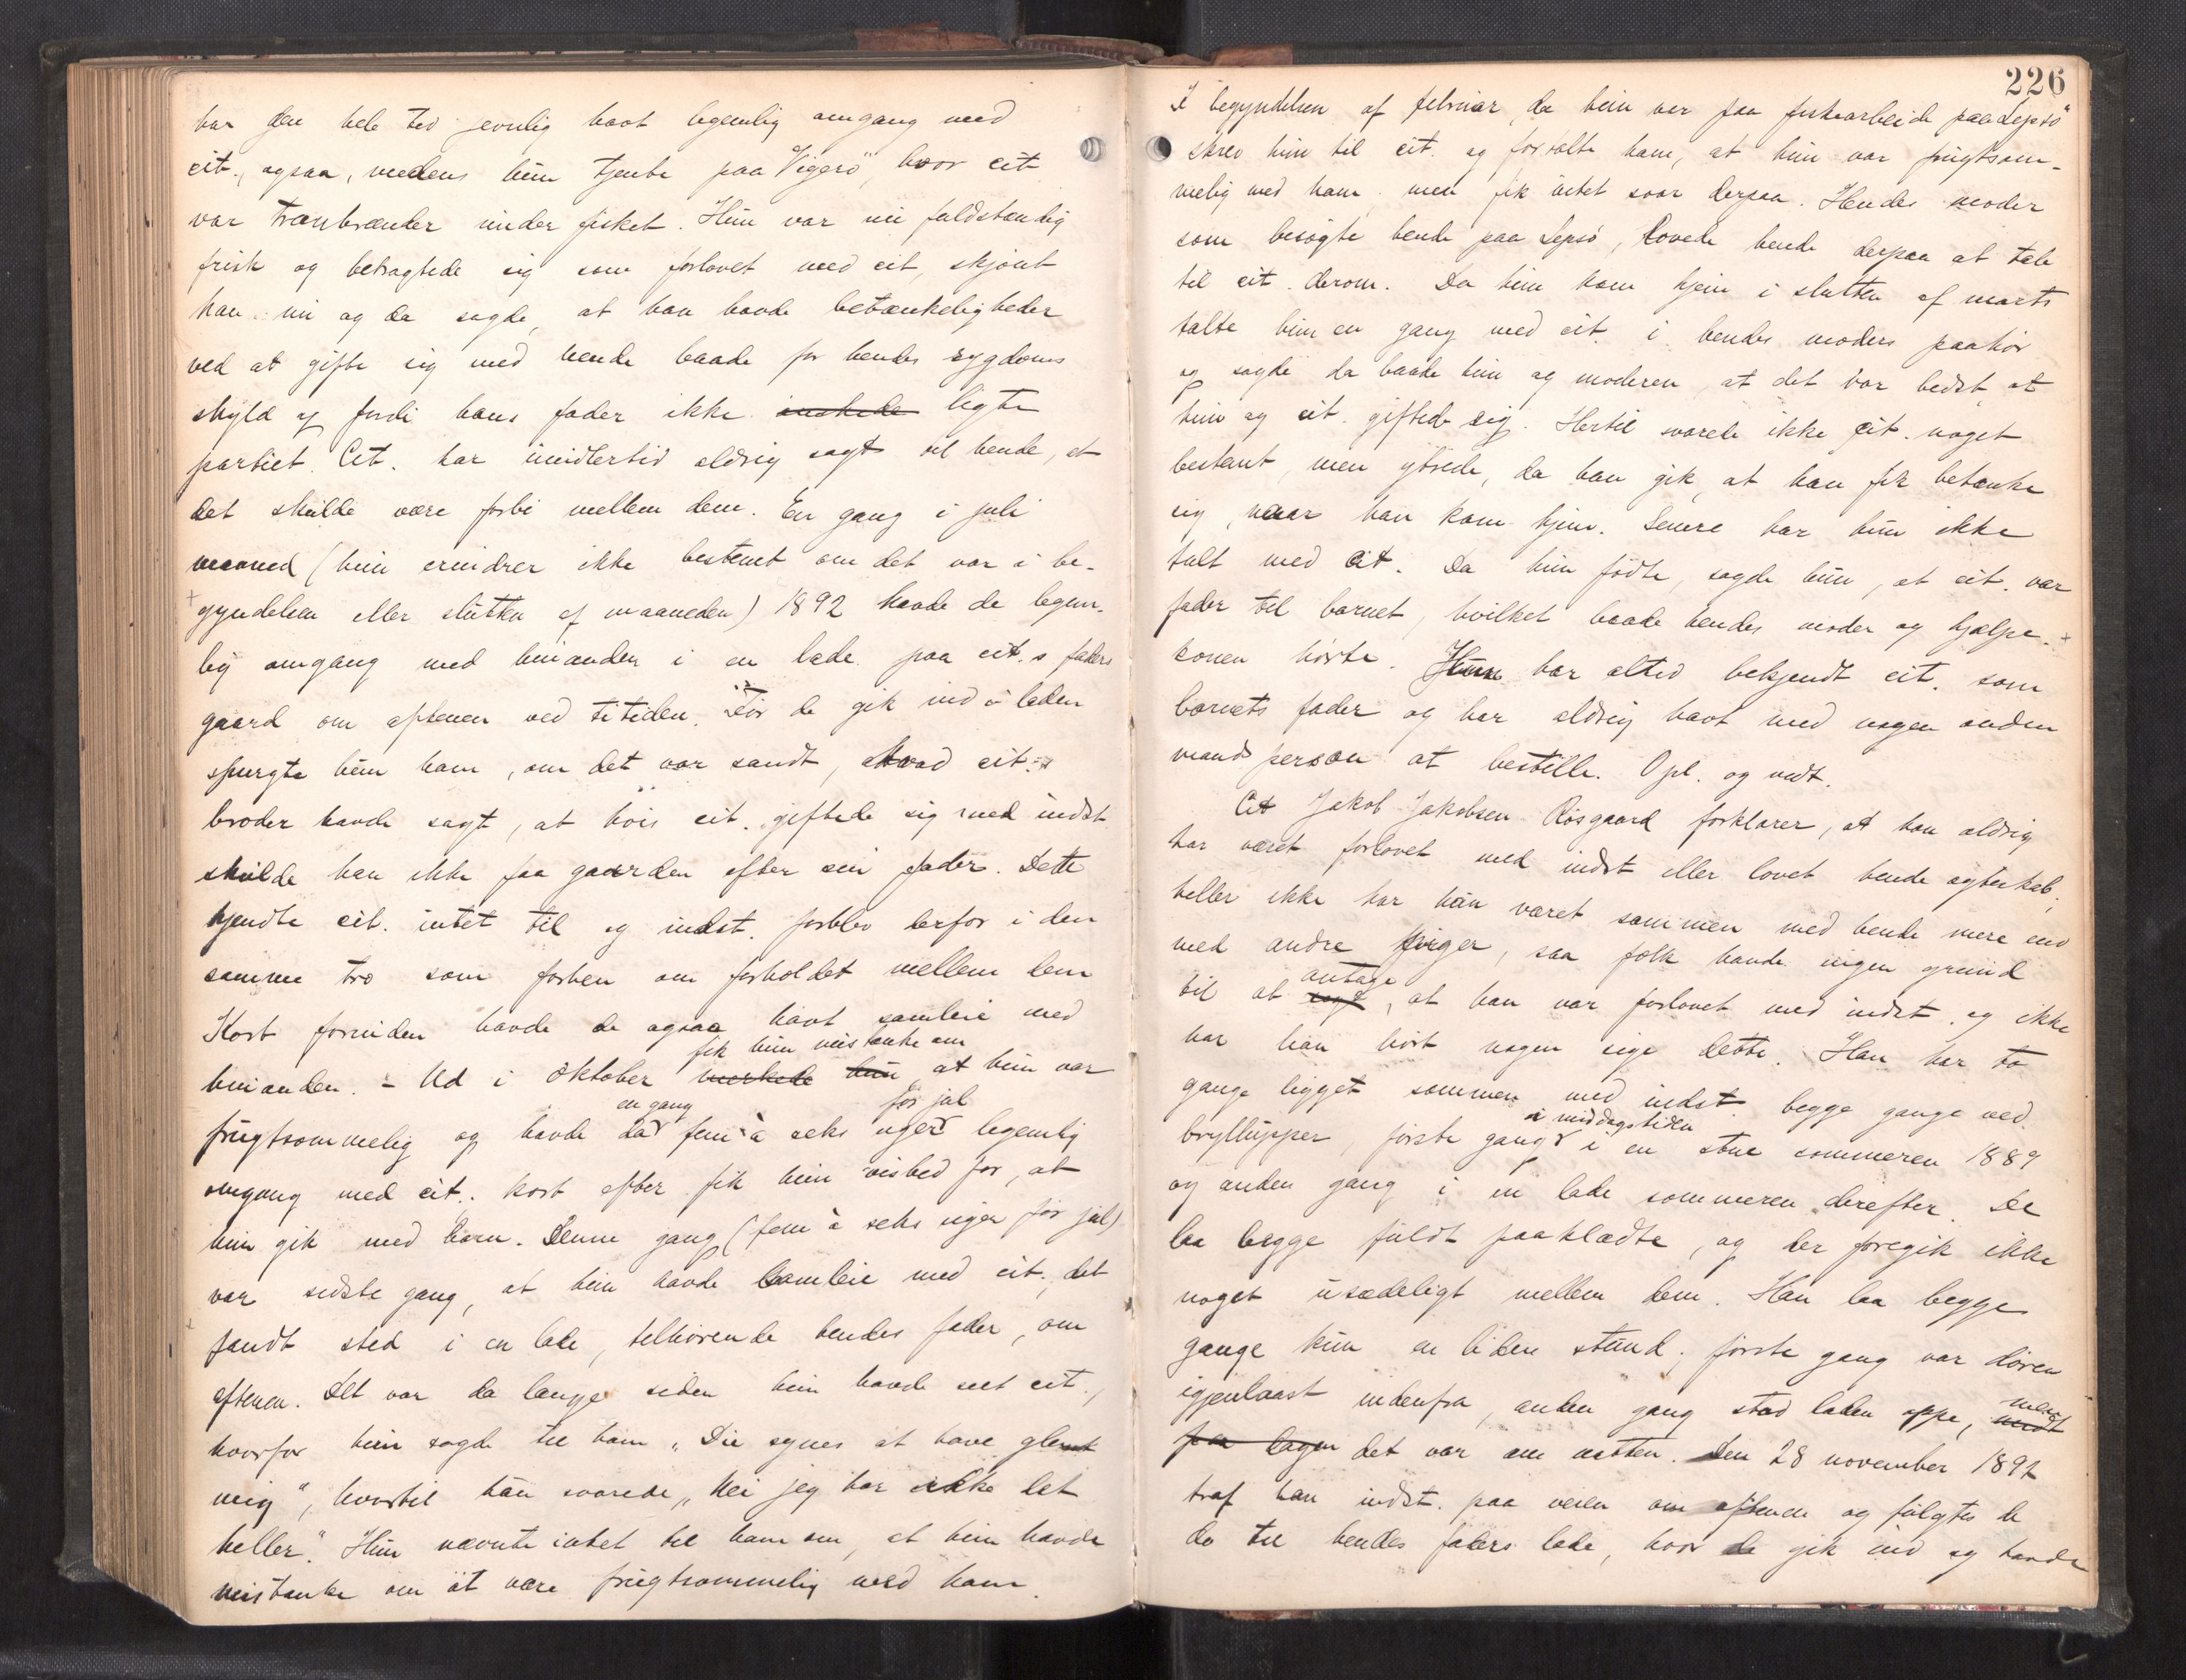 har den hele tid jevnlig havt legemlig omgang med
cit., ogsaa, medens hun tjente paa Vigerø, hvor cit
var tranbrænder under fisket. Hun var nu fuldstændig
frisk og betragtede sig som forlovet med cit, skjønt
han nu og da sagde, at han havde betænkeligheder
ved at gifte sig med hende baade for hendes sygdoms
skyld og fordi hans fader ikke ønskede ligte
partiet. Cit. har imidlertid aldrig sagt til hende, at
det skulde være forbi mellem dem. En gang i juli
maaned (hun erindrer ikke bestemt om det var i be-
gyndelsen eller slutten af maaneden) 1892 havde de legem-
lig omgang med hinanden i en lade paa cit.s faders
gaard om aftenen ved titiden. Før de gik ind i laden
spurgte hun ham, om det var sandt, hvad cit.s
broder havde sagt, at hvis cit. giftede sig med indst
skulde han ikke faa gaarden efter sin fader. Dette
kjendte cit. intet til og indst. forblev derfor i den
samme tro som forhen om forholdet mellem dem
Kort forinden havde de ogsaa havt samleie med
hinanden. - Ud i oktober merkede hun fik hun mistanke om at hun var
frugtsommelig og havde da en gang fem à seks uger før jul legemlig
omgang med cit.. Kort efter fik hun vished for, at
hun gik med barn. Denne gang (fem à seks uger før jul)
var sidste gang, at hun havde samleie med cit., det
fandt sted i en lade, tilhørende hendes fader, om
aftenen. Det var da længe siden hun havde seet cit.,
hvorfor hun sagde til ham „Du synes at have glemt
mig", hvortil han svarede „Nei jeg har ikke det
heller." Hun nævnte intet til ham om, at hun havde
mistanke om at være frugtsommelig med ham.
226
I begyndelsen af februar, da hun var paa fiskearbeide paa Lepsø
skrev hun til cit. og fortalte ham, at hun var frugtsom-
melig med ham, men fik intet svar derpaa. Hendes moder
som besøgte hende paa Lepsø, lovede hende derpaa at tale
til cit. derom. Da hun kom hjem i slutten af marts
talte hun en gang med cit. i hendes moders paahør
og sagde da baade hun og moderen, at det var bedst, at
hun og cit. giftede sig. Hertil svarede ikke cit. noget
bestemt, men ytrede, da han gik, at han fik betænke
sig, naar han kom hjem. Senere har hun ikke
talt med cit. Da hun fødte, sagde hun, at cit. var
fader til barnet, hvilket baade hendes moder og hjælpe-
konen hørte. Hun har altid bekjendt cit. som
barnets fader og har aldrig havt med nogen anden
mandsperson at bestille. Opl. og vedt.
Cit Jakob Jakobsen Røsgaard forklarer, at han aldrig
har været forlovet med indst eller lovet hende egteskab,
heller ikke har han været sammen med hende mere end
med andre piger, saa folk havde ingen grund
til at antage, at han var forlovet med indst. og ikke
har han hørt nogen sige dette. Han har to
gange ligget sammen med indst. begge gange ved
bryllupper, første gang i middagstiden i en stue sommeren 1889
og anden gang i en lade sommeren derefter. De
laa begge fuldt paaklædte, og der foregik ikke
noget usædeligt mellem dem. Han laa begge
gange kun en liden stund; første gang var døren
igjenlaast indenfra, anden gang stod laden oppe, men
paa lagen det var om natten. Den 28 november 1892
traf han indst. paa veien om aftenen og fulgtes de
da til hendes faders lade, hvor de gik ind og havde